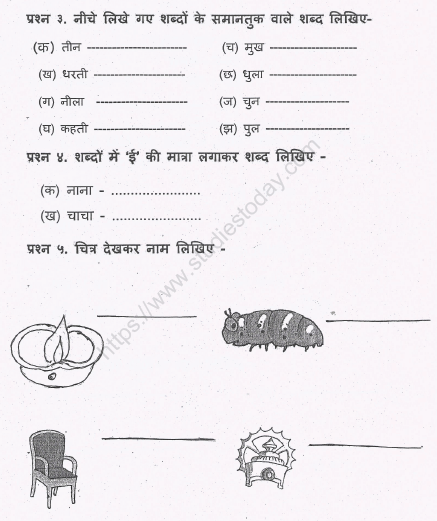 प्रश्न ३. नीचे लिखे गए शब्दों के समानतुक वाले शब्द लिखिए-
(क) तीन ------------------------ (च) मुख --------------------
(ख) धरती ---------------------- (छ) धुला ---------------------
(ग) नीला ---------------------- (ज) चुन --------------------
(घ) कहती ---------------------- (झ) पुल --------------------
प्रश्न ४. शब्दों में 'ई' की मात्रा लगाकर शब्द लिखिए -
(क) नाना - .......................
(ख) चाचा - .......................
प्रश्न ५. चित्र देखकर नाम लिखिए -
https://www.studiestoday.com